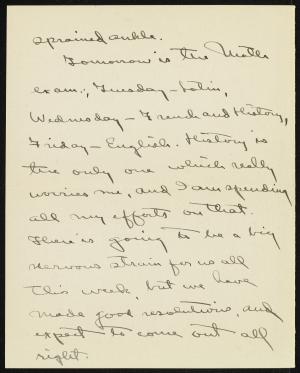 sprained ankle.
Tomorrow is the Math
exam; Tuesday – Latin,
Wednesday – French and History,
Friday – English. History is
the only one which really
worries me, and I am spending
all my efforts on that.
There is going to be a big
nervous strain for us all
this week, but we have
made good resolutions, and
expect to come out all
right.